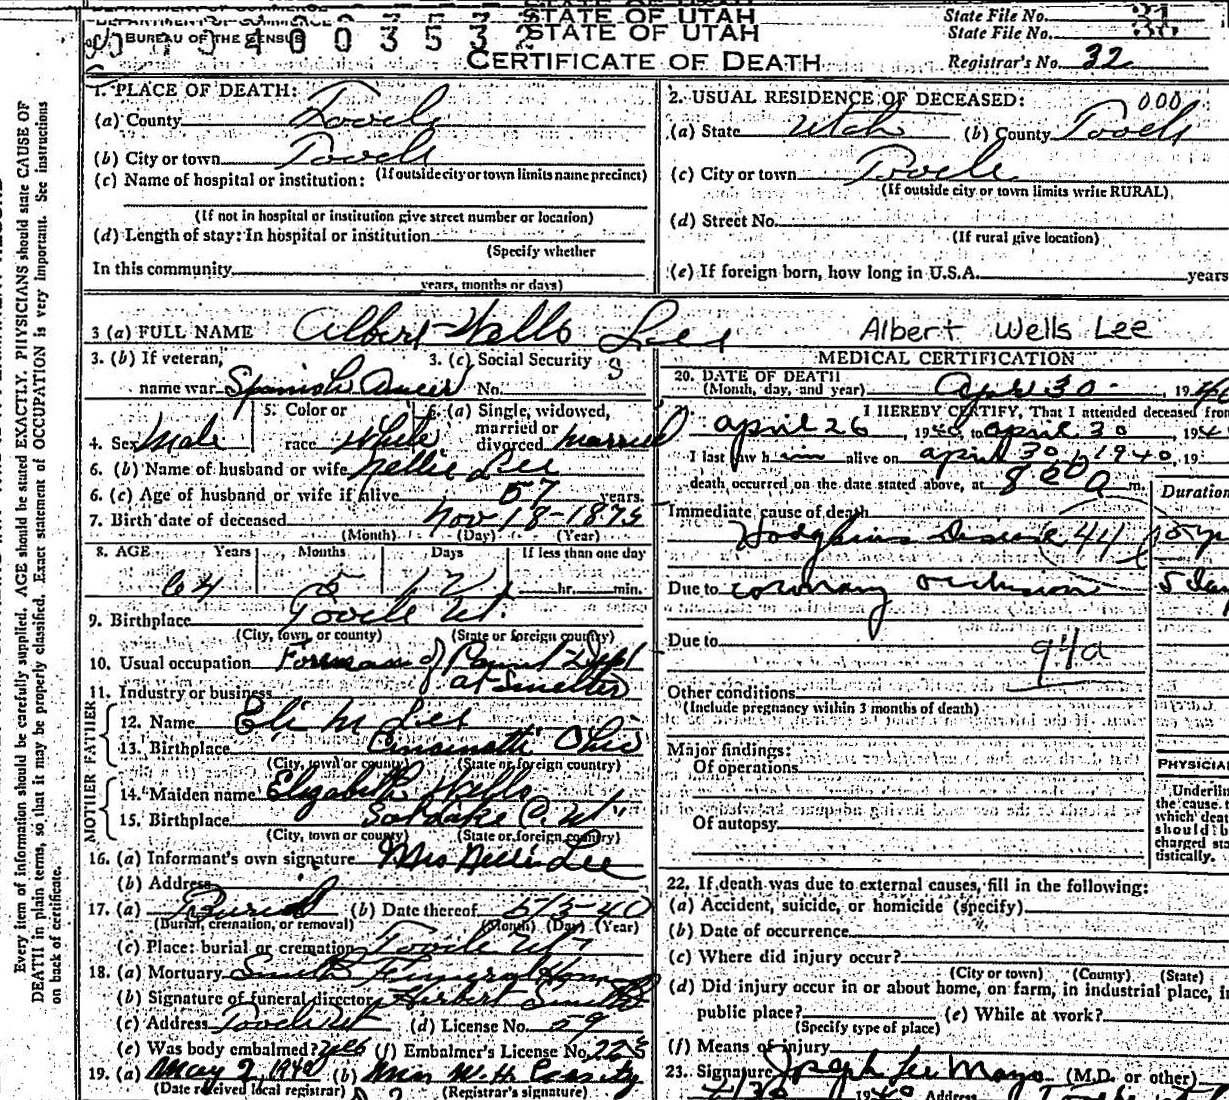 DEPARTMENT OF COMMERCE
BUREAU OF THE CENSUS
STATE OF UTAH
STATE OF UTAH
CERTIFICATE OF DEATH
State File No. 31
State File No.
Registrar's No. 32
Every item of information should be carefully supplied. AGE should be stated EXACTLY. PHYSICIANS should state CAUSE OF
DEATH in plain terms, so that it may be properly classified. Exact statement of OCCUPATION is very important. See instructions
on back of certificate.
1. PLACE OF DEATH:
(a) County Tooele
(b) City or town Tooele
(If outside city or town limits name precinct)
(c) Name of hospital or institution:
(If not in hospital or institution give street number or location)
(d) Length of stay: In hospital or institution
(Specify whether
In this community
years, months or days)
2. USUAL RESIDENCE OF DECEASED: 000
(a) State Utah (b) County Tooele
(c) City or town Tooele
(If outside city or town limits write RURAL)
(d) Street No.
(If rural give location)
(e) If foreign born, how long in U.S.A. years
3 (a) FULL NAME Albert Wells Lee
Albert Wells Lee
3. (b) If veteran, 3. (c) Social Security
name war Spanish Amer No.
4. Sex Male 5. Color or race White 6. (a) Single, widowed, married or divorced married
6. (b) Name of husband or wife Nellie Lee
6. (c) Age of husband or wife if alive 57 years.
7. Birth date of deceased Nov 18-1875
(Month) (Day) (Year)
8. AGE Years Months Days If less than one day
64 5 12 hr. min.
9. Birthplace Tooele Ut.
(City, town, or county) (State or foreign country)
10. Usual occupation Foreman of Paint Dept
at Smelter
11. Industry or business
FATHER
12. Name Eli M Lee
13. Birthplace Cincinatti Ohio
(City, town or county) (State or foreign country)
MOTHER
14. Maiden name Elizabeth Wells
15. Birthplace Salt Lake C. Ut
(City, town or county) (State or foreign country)
16. (a) Informant's own signature Mrs Nellie Lee
(b) Address
17. (a) Burial (b) Date thereof 5/3-40
(Burial, cremation, or removal) (Month) (Day) (Year)
(c) Place: burial or cremation Tooele Ut
18. (a) Mortuary Smith Funeral Home
(b) Signature of funeral director Herbert Smith
(c) Address Tooele Ut (d) License No. 59
(e) Was body embalmed? yes (f) Embalmer's License No. 225
19. (a) May 2, 1940 (b) W. H.
(Date received local registrar) (Registrar's signature)
MEDICAL CERTIFICATION
20. DATE OF DEATH
(Month, day, and year) Apr 30 - , 1940
I HEREBY CERTIFY, That I attended deceased from
april 26, 1940, to april 30, 194
I last saw him alive on april 30, 1940, 19
death occurred on the date stated above, at 8 00 a m.
Duration
Immediate cause of death
Hodgkins Disease 44
Due to coronary occlusion 5 day
Due to 94a
Other conditions
(Include pregnancy within 3 months of death)
Major findings:
Of operations
Of autopsy
PHYSICIAN
Underlin
the cause
which deat
should b
charged sta
tistically.
22. If death was due to external causes, fill in the following:
(a) Accident, suicide, or homicide (specify)
(b) Date of occurrence
(c) Where did injury occur?
(City or town) (County) (State)
(d) Did injury occur in or about home, on farm, in industrial place, in
public place? (e) While at work?
(Specify type of place)
(f) Means of injury
23. Signature Joseph Lee Mayo (M.D. or other)
1940 Address